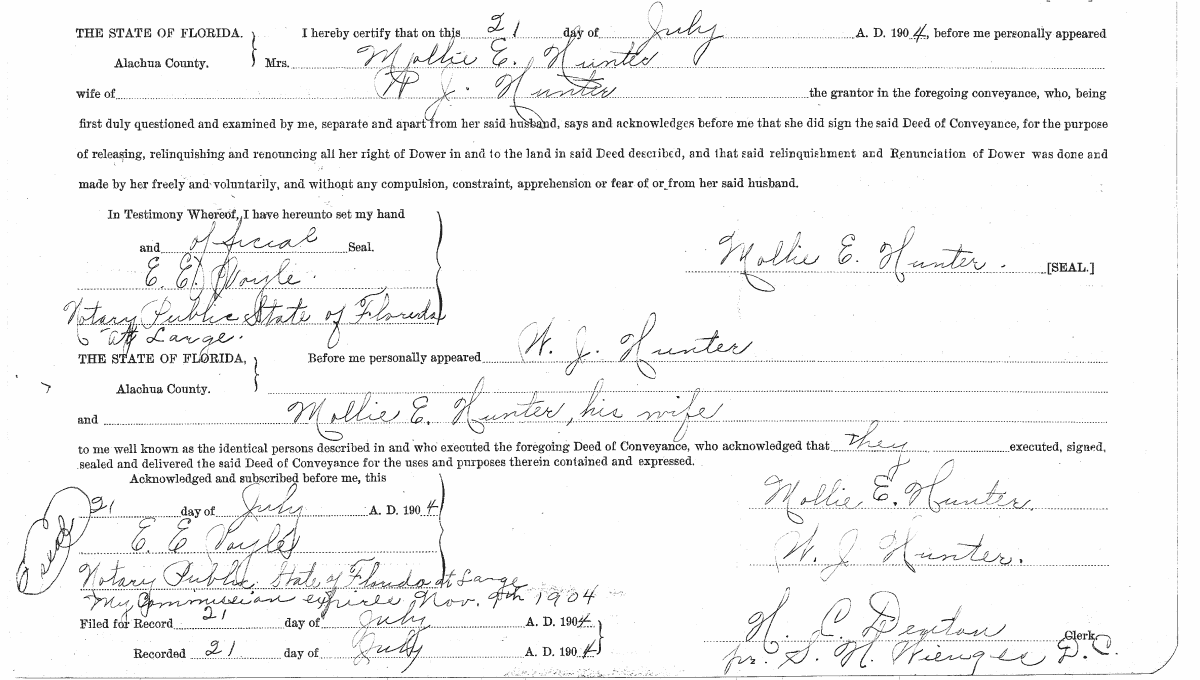 THE STATE OF FLORIDA. } I hereby certify that on this 21 day of July A. D. 1904, before me personally appeared
Alachua County. Mrs. Mollie E. Hunter
wife of W. J. Hunter the grantor in the foregoing conveyance, who, being
first duly questioned and examined by me, separate and apart from her said husband, says and acknowledges before me that she did sign the said Deed of Conveyance, for the purpose
of releasing, relinquishing and renouncing all her right of Dower in and to the land in said Deed described, and that said relinquishment and Renunciation of Dower was done and
made by her freely and voluntarily, and without any compulsion, constraint, apprehension or fear of or from her said husband.
In Testimony Whereof, I have hereunto set my hand
and official Seal.
Mollie E. Hunter. [SEAL.]
E. E. Voyle.
Notary Public State of Florida
at Large.
THE STATE OF FLORIDA, } Before me personally appeared W. J. Hunter
Alachua County.
and Mollie E. Hunter, his wife
to me well known as the identical persons described in and who executed the foregoing Deed of Conveyance, who acknowledged that they executed, signed,
sealed and delivered the said Deed of Conveyance for the uses and purposes therein contained and expressed.
Acknowledged and subscribed before me, this
21 day of July A. D. 1904
Mollie E. Hunter.
Seal
E. E. Voyle
W. J. Hunter.
Notary Public, State of Florida at Large
My Commission expires Nov. 9th 1904
Filed for Record 21 day of July A. D. 1904
H. C. Denton Clerk
Recorded 21 day of July A. D. 1904
pr. S. H. Wienges D.C.